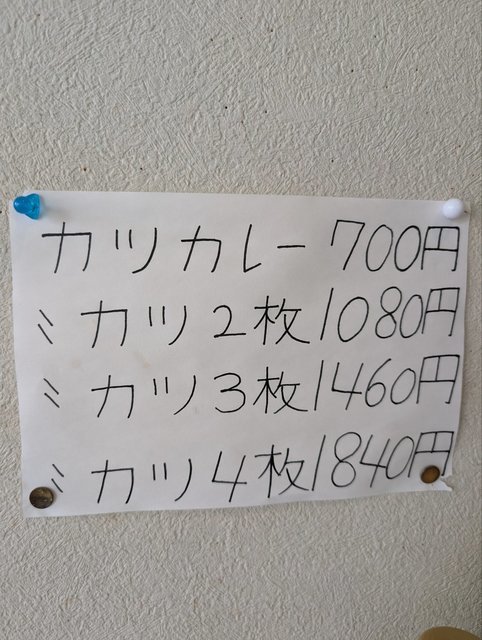 カツカレー 700円
〃 カツ2枚 1080円
〃 カツ3枚 1460円
〃 カツ4枚 1840円